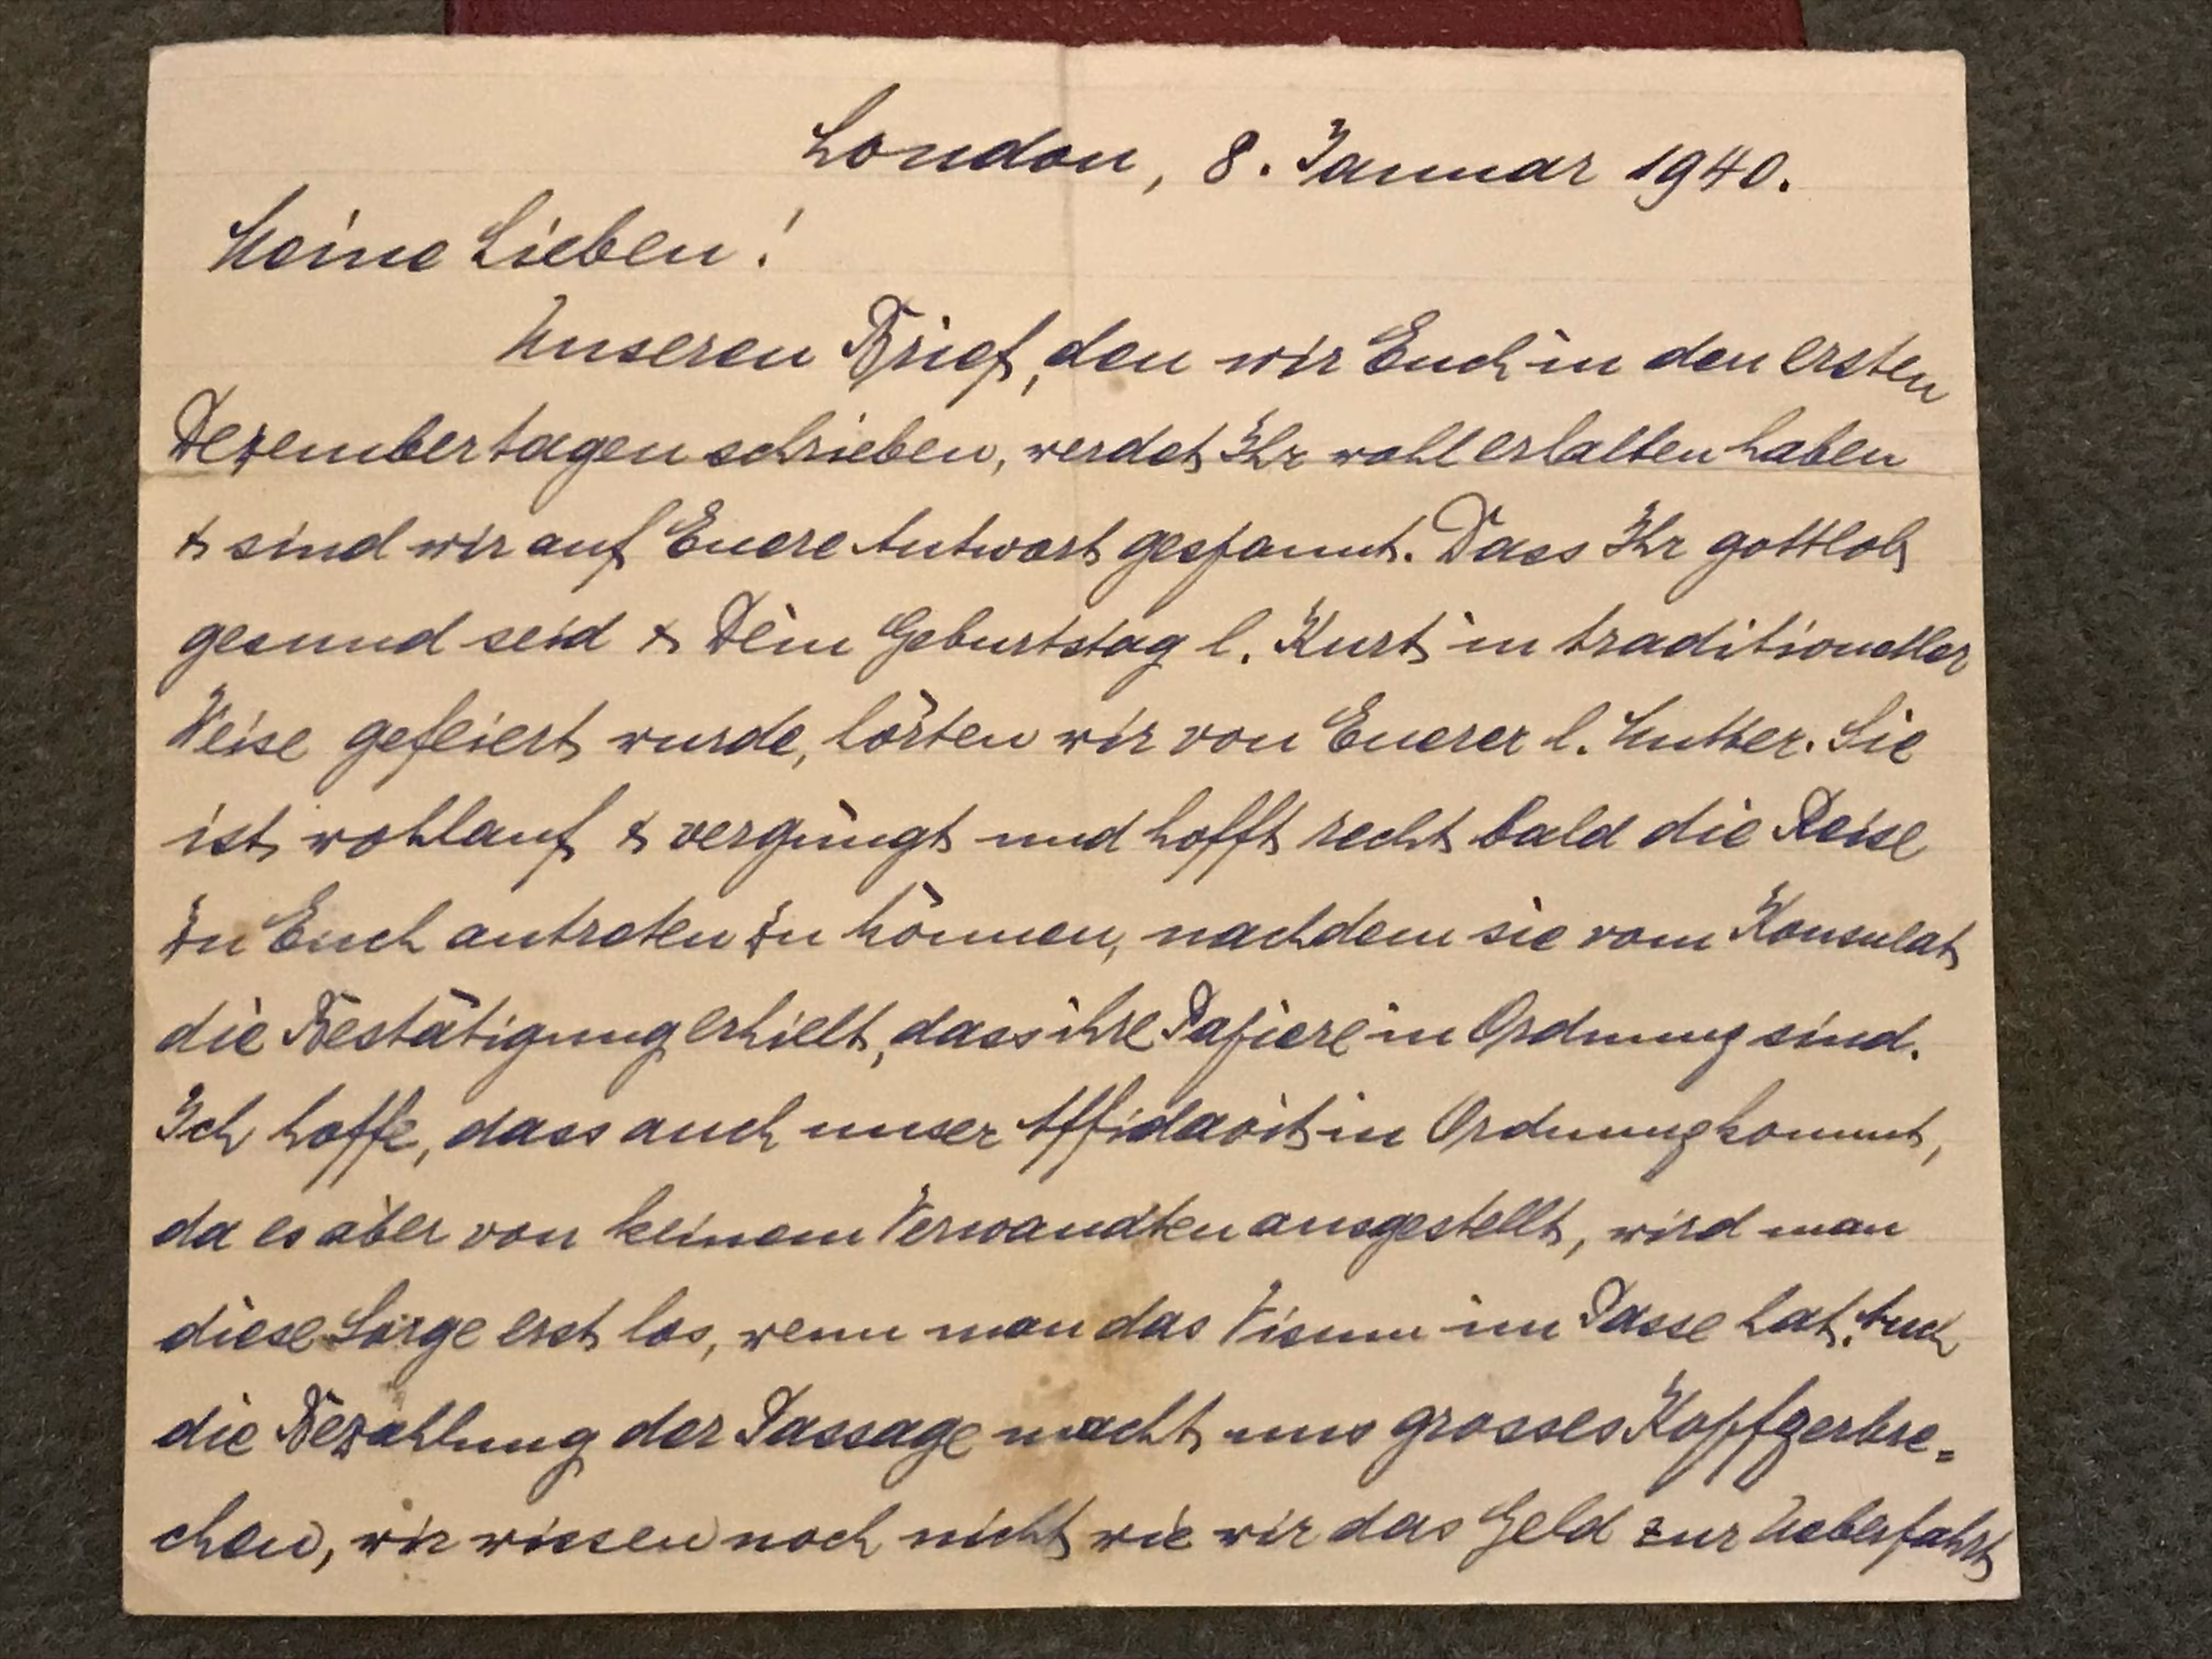 London, 8. Januar 1940.
Meine Lieben!
Unseren Brief, den wir Euch in den ersten
Dezembertagen schrieben, werdet Ihr wohl erhalten haben
& sind wir auf Euere Antwort gespannt. Dass Ihr gottlob
gesund seid & Dein Geburtstag l. Kurt in traditioneller
Weise gefeiert wurde, hörten wir von Euerer l. Mutter. Sie
ist wohlauf & vergnügt und hofft recht bald die Reise
zu Euch antreten zu können, nachdem sie vom Konsulat
die Bestätigung erhielt, dass ihre Papiere in Ordnung sind.
Ich hoffe, dass auch unser Affidavit in Ordnung kommt,
da es aber von keinem Verwandten ausgestellt, wird man
diese Sorge erst los, wenn man das Visum im Passe hat. Auch
die Bezahlung der Passage macht uns grosses Kopfzerbre=
chen, wir wissen noch nicht wie wir das Geld zur Ueberfahrt